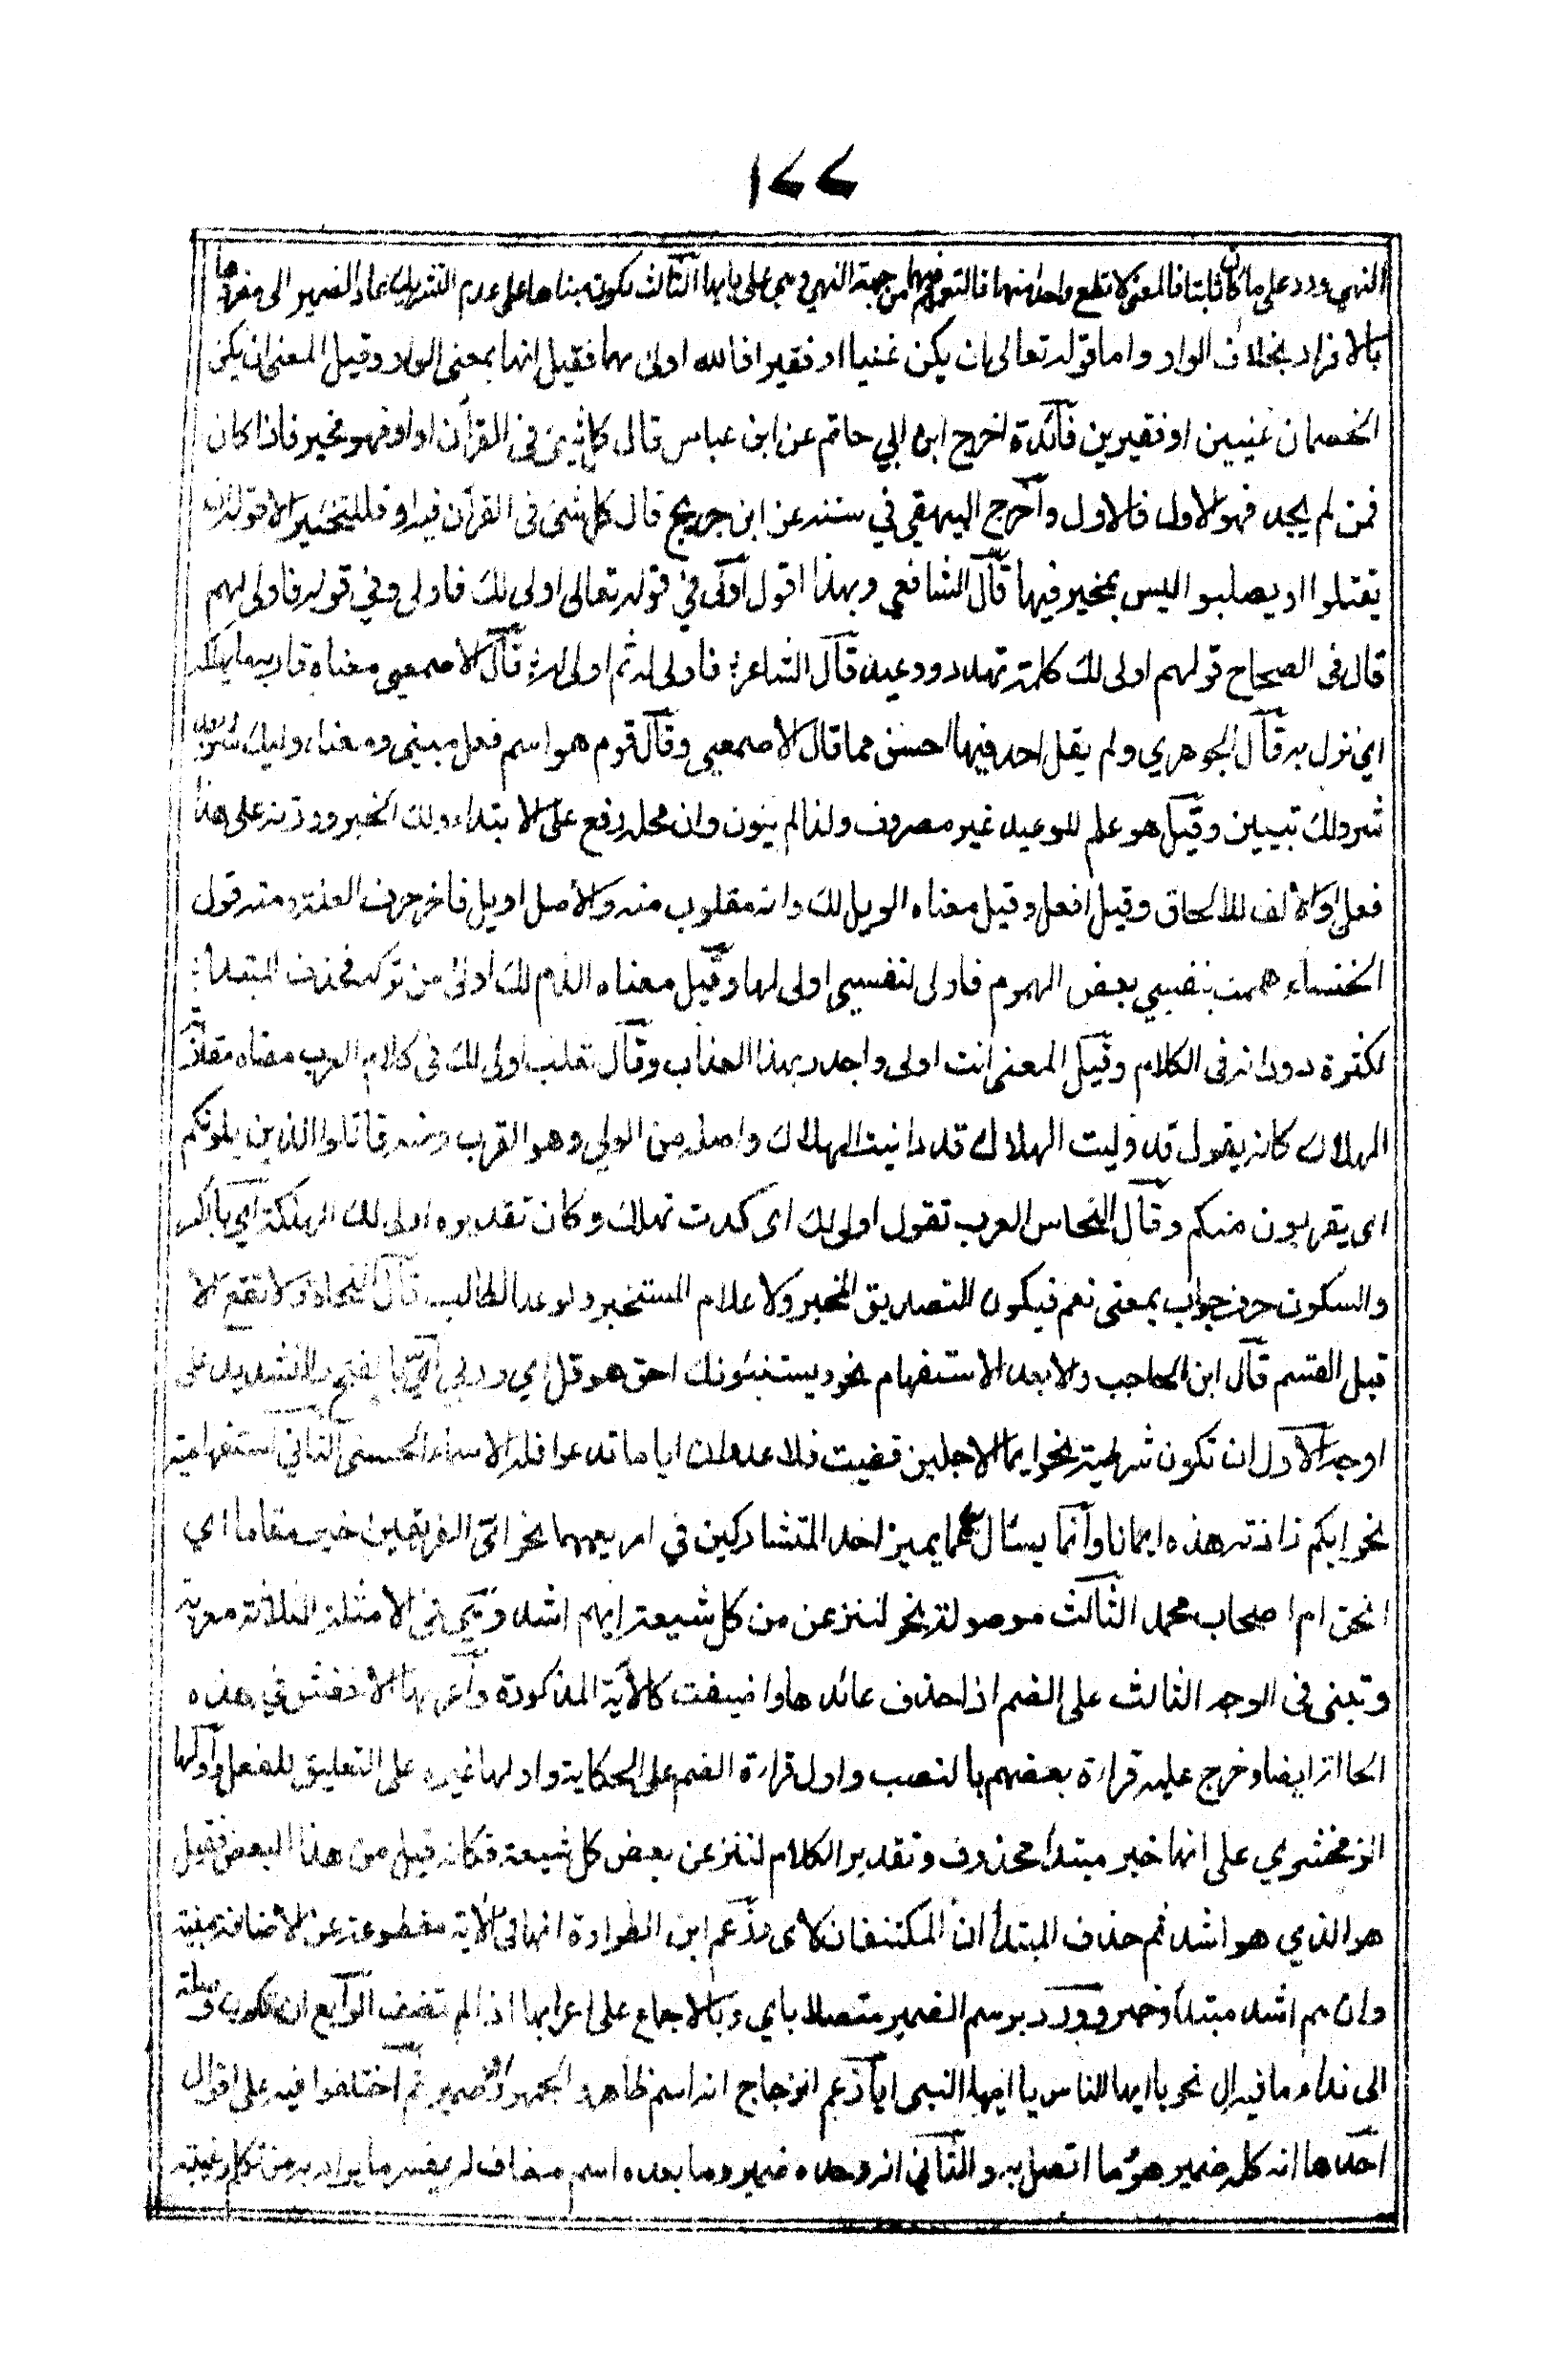 ١٧٧
النهي ورد على ما كان ثابتا فالمعنى لا تطع واحدا منهما فالتعميم فيهما من جهة النهي وهي على بابها الثالث لكونه مبناها على عدم التشريك عاد الضمير الى مفردها
بالافراد بخلاف الواو واما قوله تعالى ان يكن غنيا او فقيرا فالله اولى بهما فقيل انها بمعنى الواو وقيل المعنى ان يكن
الخصمان غنيين او فقيرين فائدة اخرج ابن ابي حاتم عن ابن عباس قال كل شيئ في القرآن او او فهو مخير فاذا كان
فمن لم يجد فهو الاول فالاول واخرج البيهقي في سننه عن ابن جريج قال كل شئ في القرآن فيه او فللتخيير الا قوله ان
يقتلوا او يصلبوا ليس بمخير فيها قال الشافعي وبهذا اقول اولى في قوله تعالى اولى لك فاولى وفي قوله فاولى لهم
قال في الصحاح قولهم اولى لك كلمة تهدد ووعيد قال الشاعر؛ فاولى له ثم اولى له؛ قال الاصمعي معناه قاربه ما يهلكه
اي نزل به قال الجوهري ولم يقل احد فيها احسن مما قال الاصمعي وقال قوم هو اسم فعل مبني ومعناه وليك شر بعد
شر ولك تبيين وقيل هو علم للوعيد غير مصروف ولذا لم ينون وان محله رفع على الابتداء ولك الخبر ووزنه على هذا
فعلى والالف للالحاق وقيل افعل وقيل معناه الويل لك وانه مقلوب منه والاصل اويل فاخر حرف العلة ومنه قول
الخنساء هممت بنفسي بعض الهموم فاولى لنفسي اولى لها وقيل معناه الذم لك اولى من تركه فحذف المبتدأ
لكثرة دورانه في الكلام وقيل المعنى انت اولى واجدر بهذا العذاب وقال ثعلب اولى لك في كلام العرب معناه مقاربة
الهلاك كانه يقول قد وليت الهلاك قد دانيت الهلاك واصله من الولي وهو القرب ومنه قاتلوا الذين يلونكم
اى يقربون منكم وقال النحاس العرب تقول اولى لك اى كدت تهلك وكان تقديره اولى لك الهلكة اي بالكسر
والسكون حرف جواب بمعنى نعم فيكون لتصديق المخبر ولاعلام المستخبر ولوعد الطالب قال النحاة ولا تقع الا
قبل القسم قال ابن الحاجب والا بعد الاستفهام نحو ويستنبئونك احق هو قل اي وربي اي بالفتح والتشديد على
اوجه الاول ان تكون شرطية نحو ايما الاجلين قضيت فلا عدوان ايا ما تدعوا فله الاسماء الحسنى الثاني استفهامية
نحو ايكم زادته هذه ايمانا وانما يسئال عما يميز احد المتشاركين في امر يعمهما نحو اي الفريقين خير مقاما اي
انحن ام اصحاب محمد الثالث موصولة نحو لننزعن من كل شيعة ايهم اشد وهي في الامثلة الثلاثة معربة
وتبنى في الوجه الثالث على الضم اذا حذف عائدها واضيفت كالآية المذكورة واعربها الاخفش في هذه
الحالة ايضا وخرج عليه قراءة بعضهم بالنصب واول قراءة الضم على الحكاية واولها غيره على التعليق للفعل واولها
الزمخشري على انها خبر مبتدأ محذوف وتقدير الكلام لننزعن بعض كل شيعة فكانه قيل من هذا البعض فقيل
هو الذي هو اشد ثم حذف المبتدأ ان المكتنفان لاى وزعم ابن الطراوة انها في الآية مقطوعة عن الاضافة مبنية
وان هم اشد مبتدأ وخبر ورد برسم الضمير متصلا باي وبالاجماع على اعرابها اذا لم تضف الرابع ان تكون وصلة
الى نداء ما فيه ال نحو يا ايها الناس يا ايها النبى ايا زعم الزجاج انه اسم ظاهر والجمهور ضمير ثم اختلفوا فيه على اقوال
احدها انه كله ضمير هو وما اتصل به والثاني انه وحده ضمير وما بعده اسم مضاف له يفسر ما يراد به من تكلم وغيبة